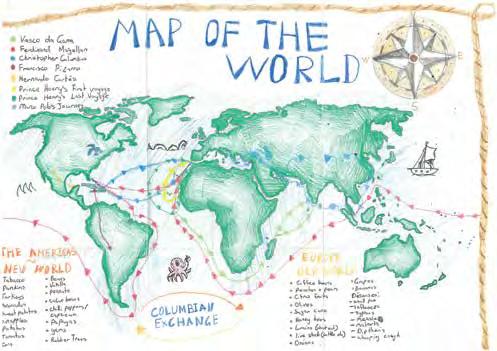 MAP OF THE
WORLD
Vasco da Gama
Ferdinand Magellan
Christopher Columbus
Francisco Pizarro
Hernando Cortés
Prince Henry's First Voyage
Prince Henry's Last Voyage
Marco Polo's Journey
W
E
S
THE AMERICAS
NEW WORLD
Tobacco
Pumpkins
Turkeys
Potatoes
Tomatoes
Corn
Beans
Vanilla
peanuts
chili peppers/
Papayas
Rubber Trees
COLUMBIAN
EXCHANGE
EUROPE
OLD WORLD
Coffee beans
Peaches + pears
Citrus fruits
Olives
Sugar cane
Honey bees
Onions
Grapes
Bananas
Diseases:
Influenza
Typhus
Measles
Malaria
Diptheria
whooping cough